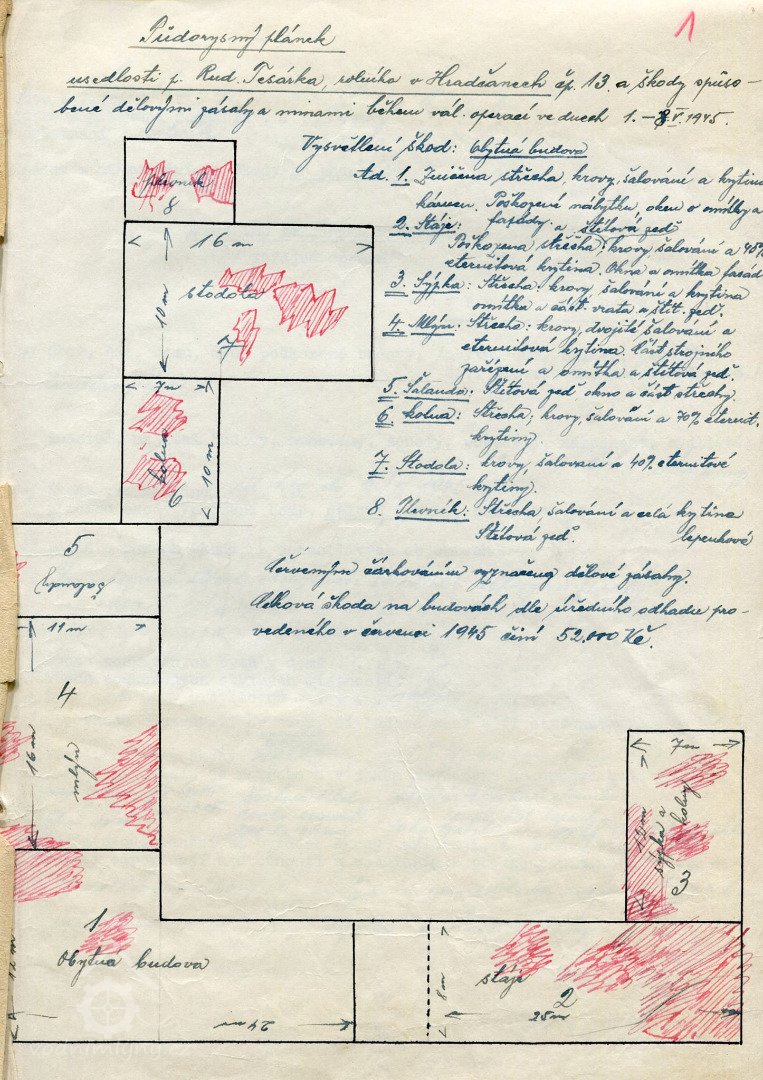 1
Půdorysný plánek
usedlosti p. Rud. Tesárka, rolníka v Hradčanech čp. 13. a škody způso-
bené dělovými zásahy a minami během vál. operací ve dnech 1. - 8. V. 1945.
Vysvětlení škod: Obytná budova
Ad. 1. Zničena střecha, krovy, šalování a krytina
Poškození nábytku, oken a omítky a
fasády a štítová zeď
2. Stáje:
Poškozena střecha, krovy, šalování a 45%
eternitová krytina. Okna a omítka fasád
3. Sýpka: Střecha: krovy, šalování a krytina
omítka a část vrata a štít. zeď.
4. Mlýn. Střecha: krovy, dvojité šalování a
eternitová krytina. Část strojního
zařízení a omítka a štítová zeď.
5. Šalanda. Štítová zeď okno a část střechy.
6 kolna: Střecha; krovy, šalování a 70% eternit.
krytiny.
7. Stodola: krovy, šalovaní a 40% eternitové
krytiny.
8. Plevník: Střecha, šalování a celá krytina
Štítová zeď. lepenková
Červeným čárkováním vyznačeny dělové zásahy.
Celková škoda na budovách dle úředního odhadu pro-
vedeného v červenci 1945 činí 52.000 Kč.
plevník
8
16 m
10 m
stodola
7
7 m
kolna
10 m
6
5
šalandy
11 m
4
16 m
mlýn
7 m
sýpka a
kolny
3
1
Obytná budova
12 m
24 m
8 m
stáje
2
25 m